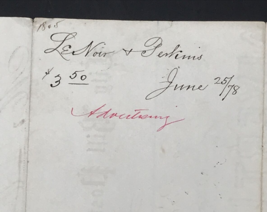 1865
LeNoir & Perkins
$3 50 June 25/78
Advertising